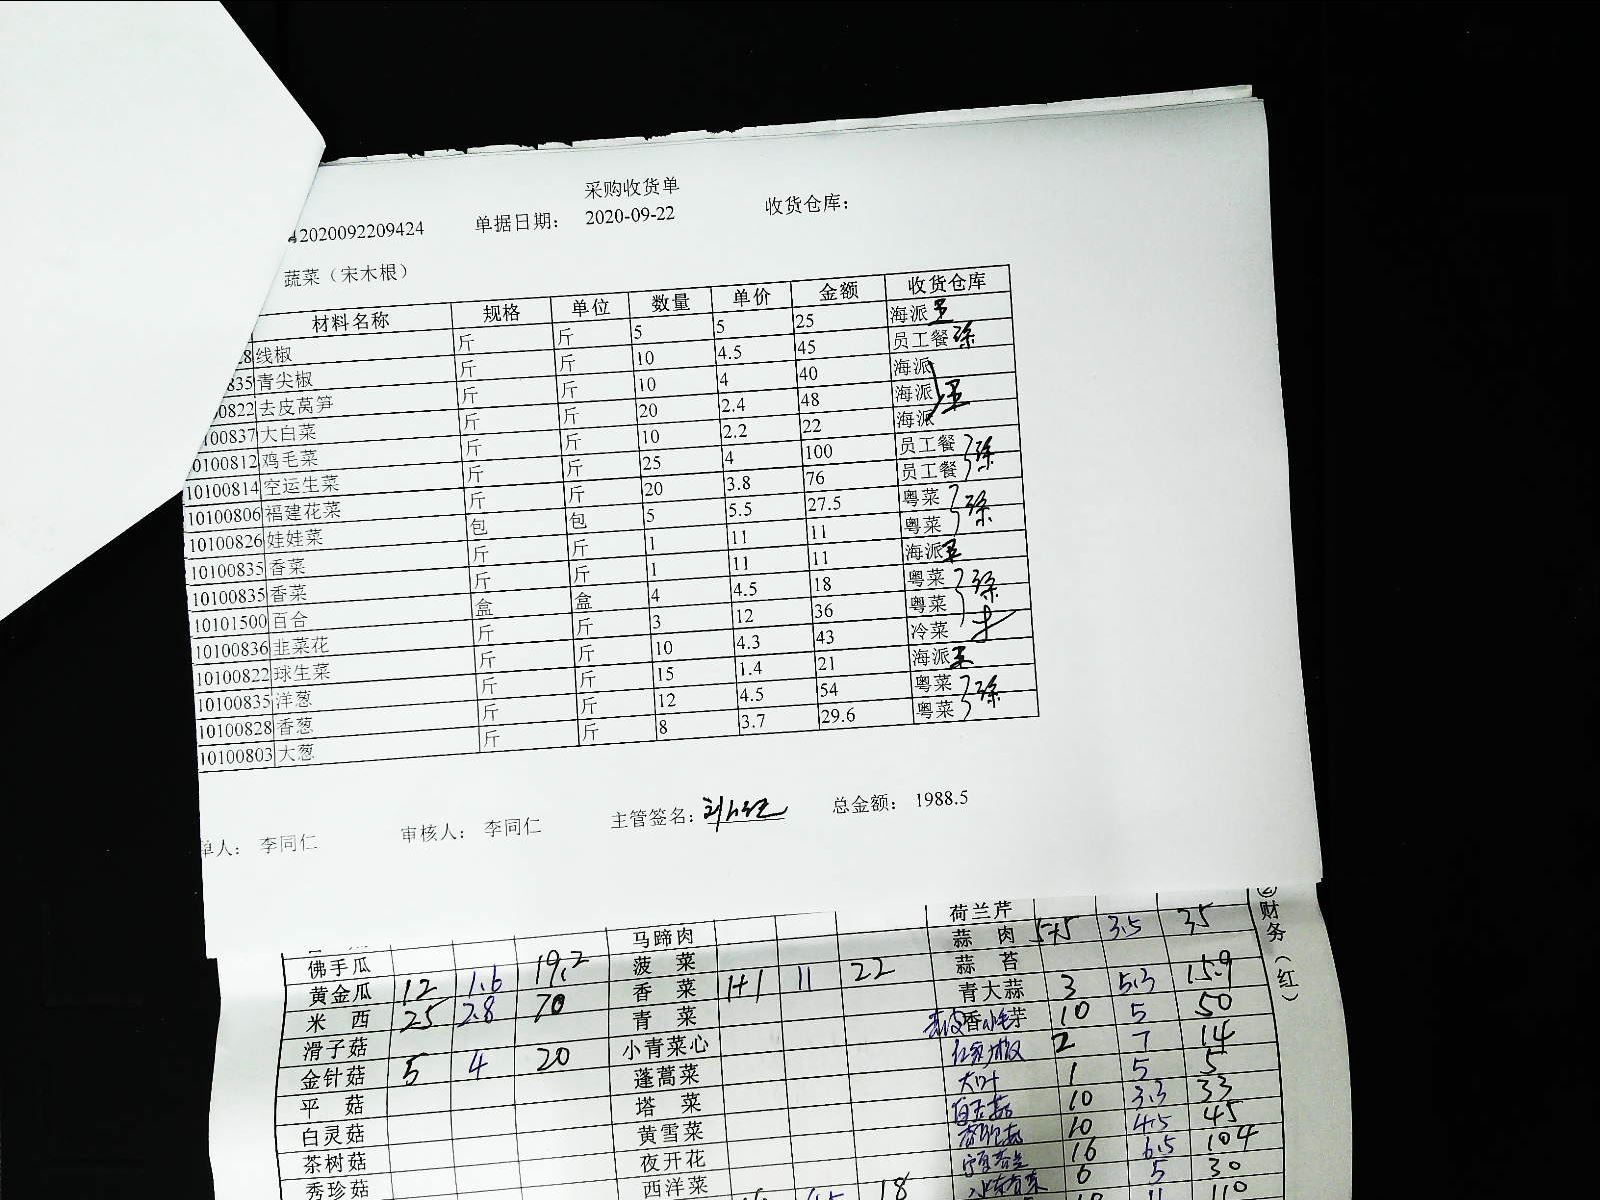 采购收货单
2020092209424 单据日期： 2020-09-22 收货仓库：
蔬菜（宋木根）
材料名称 规格 单位 数量 单价 金额 收货仓库
8 线椒 斤 斤 5 5 25 海派 王
835 青尖椒 斤 斤 10 4.5 45 员工餐 徐
00822 去皮莴笋 斤 斤 10 4 40 海派
100837 大白菜 斤 斤 20 2.4 48 海派 王
0100812 鸡毛菜 斤 斤 10 2.2 22 海派
10100814 空运生菜 斤 斤 25 4 100 员工餐 徐
10100806 福建花菜 斤 斤 20 3.8 76 员工餐
10100826 娃娃菜 包 包 5 5.5 27.5 粤菜 徐
10100835 香菜 斤 斤 1 11 11 粤菜
10100835 香菜 斤 斤 1 11 11 海派 王
10101500 百合 盒 盒 4 4.5 18 粤菜 徐
10100836 韭菜花 斤 斤 3 12 36 粤菜
10100822 球生菜 斤 斤 10 4.3 43 冷菜
10100835 洋葱 斤 斤 15 1.4 21 海派 王
10100828 香葱 斤 斤 12 4.5 54 粤菜 徐
10100803 大葱 斤 斤 8 3.7 29.6 粤菜
单人： 李同仁 审核人： 李同仁 主管签名： 总金额： 1988.5
荷兰芹
马蹄肉 蒜肉 5+5 3.5 35
佛手瓜 菠菜 蒜苔
黄金瓜 12 1.6 19.2 香菜 1+1 11 22 青大蒜 3 5.3 15.9
米西 25 2.8 70 青菜 香芋 10 5 50
滑子菇 小青菜心 2 7 14
金针菇 5 4 20 蓬蒿菜 大叶 1 5 5
平菇 塔菜 白玉菇 10 3.3 33
白灵菇 黄雪菜 10 4.5 45
茶树菇 夜开花 16 6.5 104
秀珍菇 西洋菜 18 6 5 30
110
②财务（红）